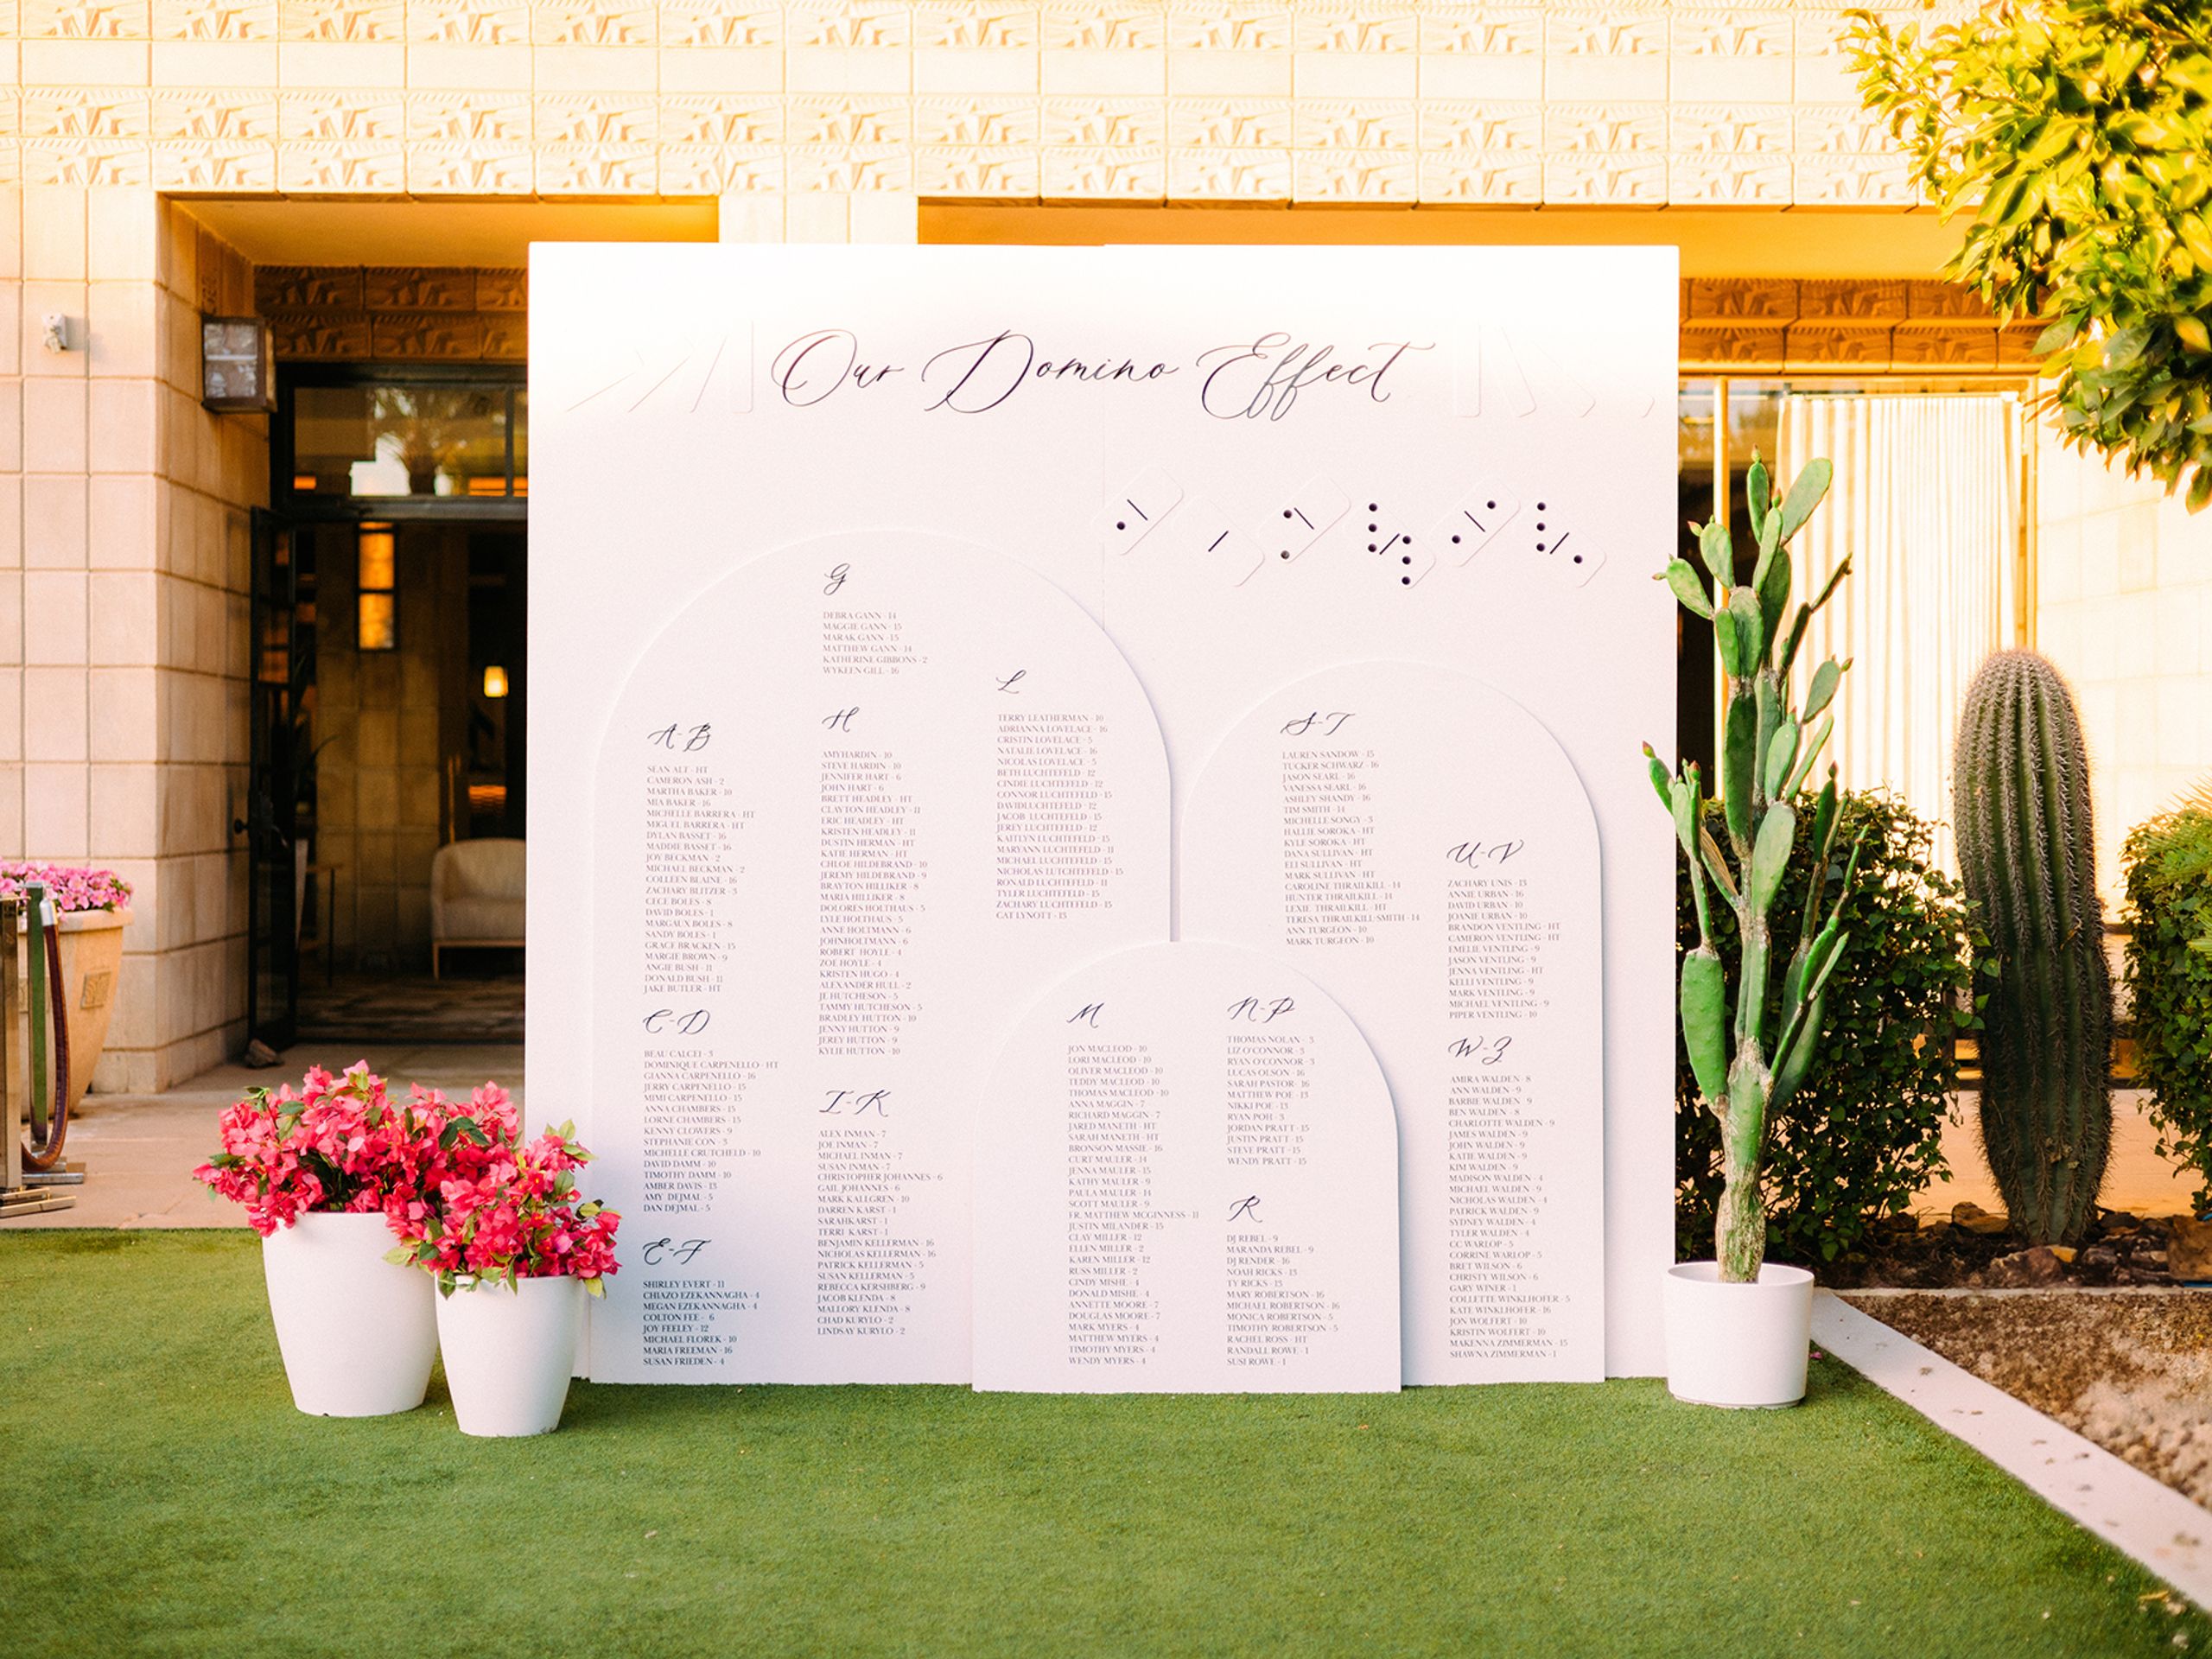 Our Domino Effect
G
DEBRA GANN - 14
MAGGIE GANN - 15
MARAK GANN - 15
MATTHEW GANN - 14
KATHERINE GIBBONS - 2
WYKEEN GILL - 16
A-B
SEAN ALT - HT
CAMERON ASH - 2
MARTHA BAKER - 10
MIA BAKER - 16
MICHELLE BARRERA - HT
MIGUEL BARRERA - HT
DYLAN BASSET - 16
MADDIE BASSET - 16
JOY BECKMAN - 2
MICHAEL BECKMAN - 2
COLLEEN BLAINE - 16
ZACHARY BLITZER - 3
CECE BOLES - 8
DAVID BOLES - 1
MARGAUX BOLES - 8
SANDY BOLES - 1
GRACE BRACKEN - 15
MARGIE BROWN - 9
ANGIE BUSH - 11
DONALD BUSH - 11
JAKE BUTLER - HT
C-D
BEAU CALCEI - 3
DOMINIQUE CARPENELLO - HT
GIANNA CARPENELLO - 16
JERRY CARPENELLO - 15
MIMI CARPENELLO - 15
ANNA CHAMBERS - 15
LORNE CHAMBERS - 15
KENNY CLOWERS - 9
STEPHANIE CON - 3
MICHELLE CRUTCHELD - 10
DAVID DAMM - 10
TIMOTHY DAMM - 10
AMBER DAVIS - 13
AMY DEJMAL - 5
DAN DEJMAL - 5
E-F
SHIRLEY EVERT - 11
CHIAZO EZEKANNAGHA - 4
MEGAN EZEKANNAGHA - 4
COLTON FEE - 6
JOY FEELEY - 12
MICHAEL FLOREK - 10
MARIA FREEMAN - 16
SUSAN FRIEDEN - 4
H
AMYHARDIN - 10
STEVE HARDIN - 10
JENNIFER HART - 6
JOHN HART - 6
BRETT HEADLEY - HT
CLAYTON HEADLEY - 11
ERIC HEADLEY - HT
KRISTEN HEADLEY - 11
DUSTIN HERMAN - HT
KATIE HERMAN - HT
CHLOE HILDEBRAND - 10
JEREMY HILDEBRAND - 9
BRAYTON HILLIKER - 8
MARIA HILLIKER - 8
DOLORES HOLTHAUS - 5
LYLE HOLTHAUS - 5
ANNE HOLTMANN - 6
JOHNHOLTMANN - 6
ROBERT HOYLE - 4
ZOE HOYLE - 4
KRISTEN HUGO - 4
ALEXANDER HULL - 2
JE HUTCHESON - 5
TAMMY HUTCHESON - 5
BRADLEY HUTTON - 10
JENNY HUTTON - 9
JEREY HUTTON - 9
KYLIE HUTTON - 10
I-K
ALEX INMAN - 7
JOE INMAN - 7
MICHAEL INMAN - 7
SUSAN INMAN - 7
CHRISTOPHER JOHANNES - 6
GAIL JOHANNES - 6
MARK KALLGREN - 10
DARREN KARST - 1
SARAHKARST - 1
TERRI KARST - 1
BENJAMIN KELLERMAN - 16
NICHOLAS KELLERMAN - 16
PATRICK KELLERMAN - 5
SUSAN KELLERMAN - 5
REBECCA KERSHBERG - 9
JACOB KLENDA - 8
MALLORY KLENDA - 8
CHAD KURYLO - 2
LINDSAY KURYLO - 2
L
TERRY LEATHERMAN - 10
ADRIANNA LOVELACE - 16
CRISTIN LOVELACE - 5
NATALIE LOVELACE - 16
NICOLAS LOVELACE - 5
BETH LUCHTEFELD - 12
CINDIE LUCHTEFELD - 12
CONNOR LUCHTEFELD - 15
DAVIDLUCHTEFELD - 12
JACOB LUCHTEFELD - 15
JEREY LUCHTEFELD - 12
KAITLYN LUCHTEFELD - 15
MARYANN LUCHTEFELD - 11
MICHAEL LUCHTEFELD - 15
NICHOLAS LUTCHTEFELD - 15
RONALD LUCHTEFELD - 11
TYLER LUCHTEFELD - 15
ZACHARY LUCHTEFELD - 15
CAT LYNOTT - 13
M
JON MACLEOD - 10
LORI MACLEOD - 10
OLIVER MACLEOD - 10
TEDDY MACLEOD - 10
THOMAS MACLEOD - 10
ANNA MAGGIN - 7
RICHARD MAGGIN - 7
JARED MANETH - HT
SARAH MANETH - HT
BRONSON MASSIE - 16
CURT MAULER - 14
JENNA MAULER - 15
KATHY MAULER - 9
PAULA MAULER - 14
SCOTT MAULER - 9
FR. MATTHEW MCGINNESS - 11
JUSTIN MILANDER - 15
CLAY MILLER - 12
ELLEN MILLER - 2
KAREN MILLER - 12
RUSS MILLER - 2
CINDY MISHE - 4
DONALD MISHE - 4
ANNETTE MOORE - 7
DOUGLAS MOORE - 7
MARK MYERS - 4
MATTHEW MYERS - 4
TIMOTHY MYERS - 4
WENDY MYERS - 4
N-P
THOMAS NOLAN - 3
LIZ O'CONNOR - 3
RYAN O'CONNOR - 3
LUCAS OLSON - 16
SARAH PASTOR - 16
MATTHEW POE - 13
NIKKI POE - 13
RYAN POH - 3
JORDAN PRATT - 15
JUSTIN PRATT - 15
STEVE PRATT - 15
WENDY PRATT - 15
R
DJ REBEL - 9
MARANDA REBEL - 9
DJ RENDER - 16
NOAH RICKS - 13
TY RICKS - 13
MARY ROBERTSON - 16
MICHAEL ROBERTSON - 16
MONICA ROBERTSON - 5
TIMOTHY ROBERTSON - 5
RACHEL ROSS - HT
RANDALL ROWE - 1
SUSI ROWE - 1
S-T
LAUREN SANDOW - 15
TUCKER SCHWARZ - 16
JASON SEARL - 16
VANESSA SEARL - 16
ASHLEY SHANDY - 16
TIM SMITH - 14
MICHELLE SONGY - 3
HALLIE SOROKA - HT
KYLE SOROKA - HT
DANA SULLIVAN - HT
ELI SULLIVAN - HT
MARK SULLIVAN - HT
CAROLINE THRAILKILL - 14
HUNTER THRAILKILL - 14
LEXIE THRAILKILL - HT
TERESA THRAILKILL-SMITH - 14
ANN TURGEON - 10
MARK TURGEON - 10
U-V
ZACHARY UNIS - 13
ANNIE URBAN - 16
DAVID URBAN - 10
JOANIE URBAN - 10
BRANDON VENTLING - HT
CAMERON VENTLING - HT
EMELIE VENTLING - 9
JASON VENTLING - 9
JENNA VENTLING - HT
KELLI VENTLING - 9
MARK VENTLING - 9
MICHAEL VENTLING - 9
PIPER VENTLING - 10
W-Z
AMIRA WALDEN - 8
ANN WALDEN - 9
BARBIE WALDEN - 9
BEN WALDEN - 8
CHARLOTTE WALDEN - 9
JAMES WALDEN - 9
JOHN WALDEN - 9
KATIE WALDEN - 9
KIM WALDEN - 9
MADISON WALDEN - 4
MICHAEL WALDEN - 9
NICHOLAS WALDEN - 4
PATRICK WALDEN - 9
SYDNEY WALDEN - 4
TYLER WALDEN - 4
CC WARLOP - 5
CORRINE WARLOP - 5
BRET WILSON - 6
CHRISTY WILSON - 6
GARY WINER - 1
COLLETTE WINKLHOFER - 5
KATE WINKLHOFER - 16
JON WOLFERT - 10
KRISTIN WOLFERT - 10
MAKENNA ZIMMERMAN - 15
SHAWNA ZIMMERMAN - 1